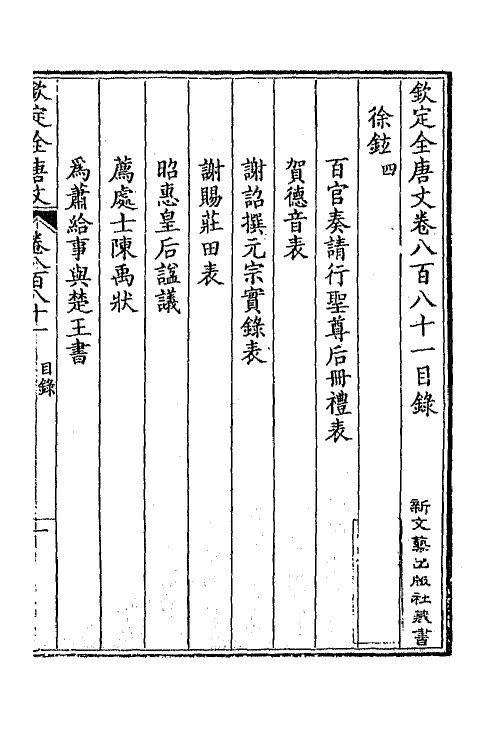 欽定全唐文卷八百八十一目錄
新文藝出版社藏書
徐鉉四
百官奏請行聖尊后冊禮表
賀德音表
謝詔撰元宗實錄表
謝賜莊田表
昭惠皇后諡議
薦處士陳禹狀
爲蕭給事與楚王書
欽定全唐文 卷八百八十一 目錄 一